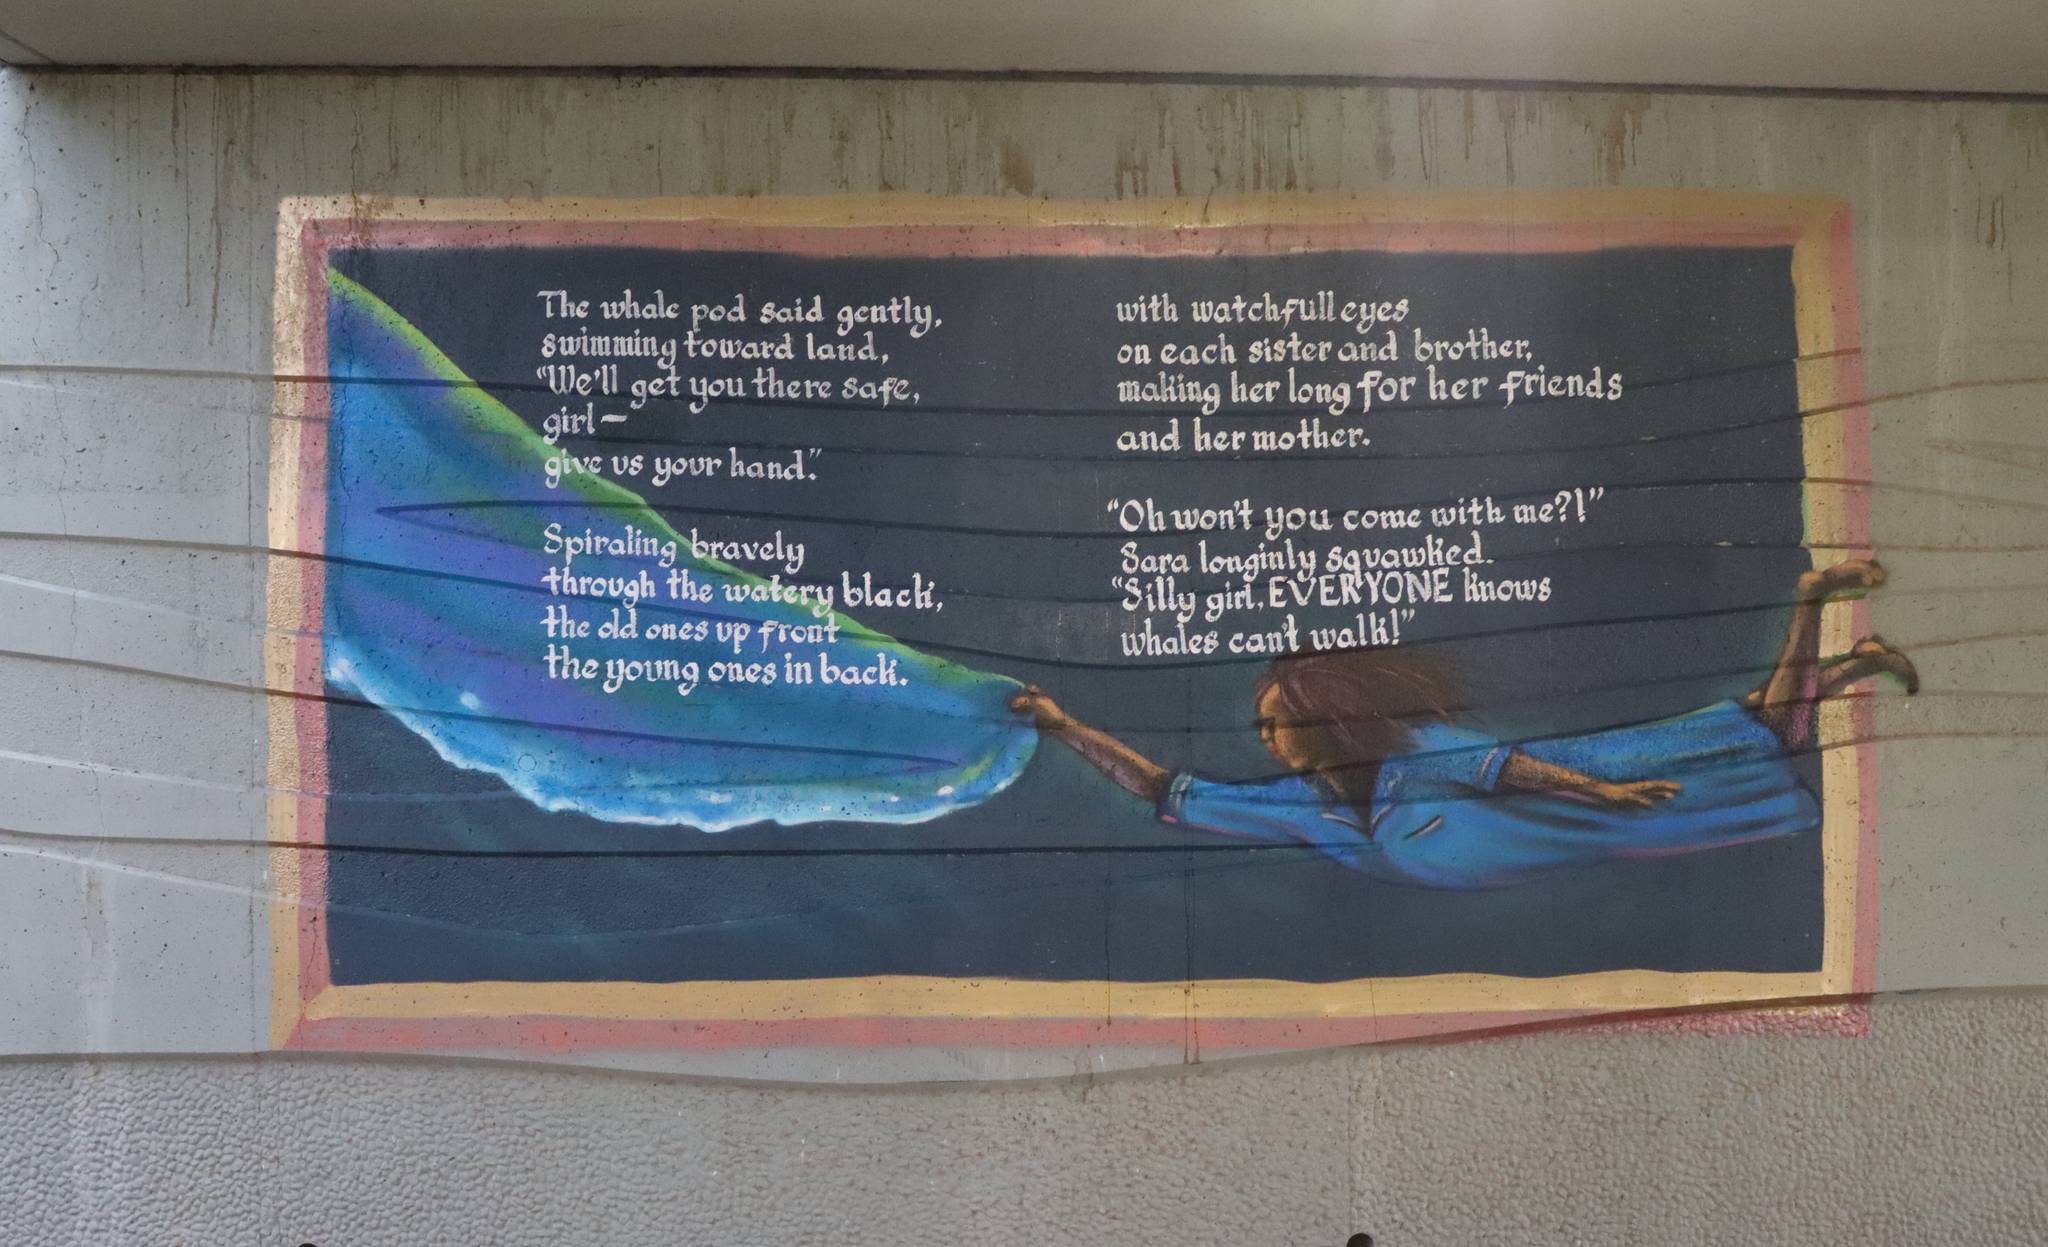 The whale pod said gently,
swimming toward land,
"We'll get you there safe,
girl—
give us your hand."
Spiraling bravely
through the watery black,
the old ones up front
the young ones in back.
with watchfull eyes
on each sister and brother,
making her long for her friends
and her mother.
"Oh won't you come with me?!"
Sara longinly squawked.
"Silly girl, EVERYONE knows
whales can't walk!"